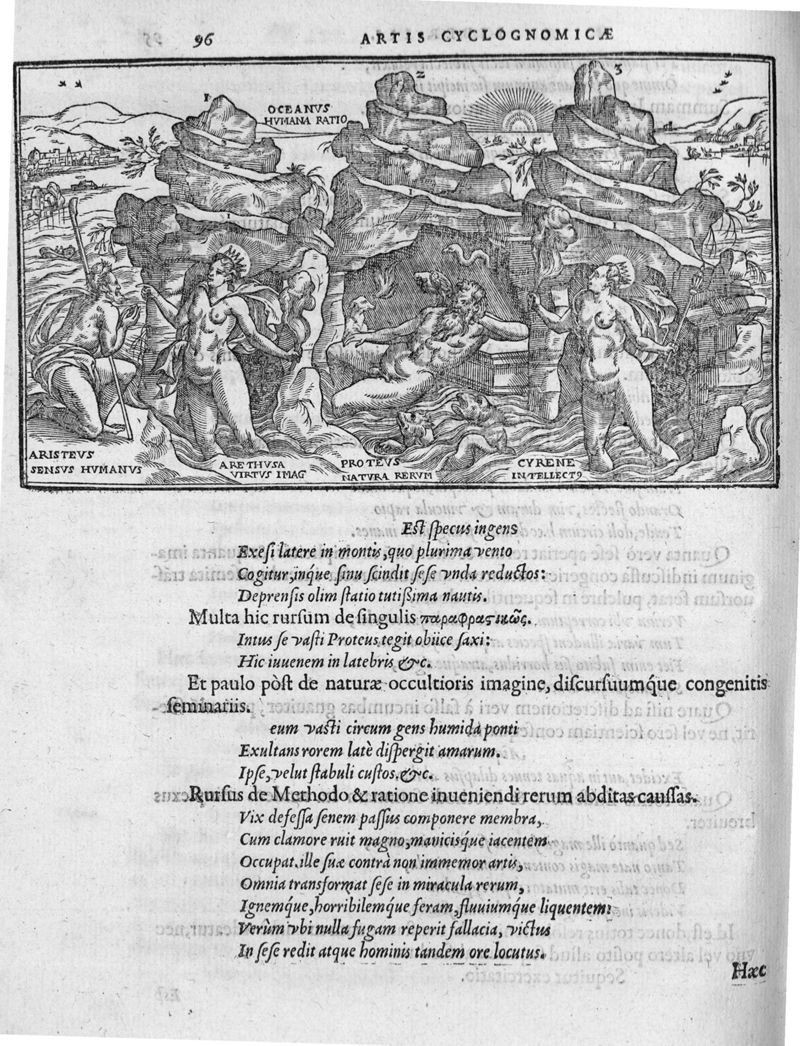 96
ARTIS CYCLOGNOMICÆ
1
2
3
OCEANVS
HVMANA RATIO
1
2
1
2
1
ARISTEVS
SENSVS HVMANVS
ARETHVSA
VIRTVS IMAG
PROTEVS
NATVRA RERVM
CYRENE
INTELLECTꝰ
Est specus ingens
Exesi latere in montis, quo plurima vento
Cogitur, inque sinu scindit sese vnda reductos:
Deprensis olim statio tutißima nautis.
Multa hic rursum de singulis παραφραστικῶς.
Intus se vasti Proteus tegit obiice saxi:
Hic iuuenem in latebris &c.
Et paulo pòst de naturæ occultioris imagine, discursuumque congenitis
seminariis.
eum vasti circum gens humida ponti
Exultans rorem latè dispergit amarum.
Ipse, velut stabuli custos, &c.
Rursus de Methodo & ratione inueniendi rerum abditas caussas.
Vix defessa senem passus componere membra,
Cum clamore ruit magno, manicisque iacentem
Occupat. ille suæ contrà non immemor artis,
Omnia transformat sese in miracula rerum,
Ignemque, horribilemque feram, fluuiumque liquentem:
Verùm vbi nulla fugam reperit fallacia, victus
In sese redit atque hominis tandem ore locutus.
Hæc